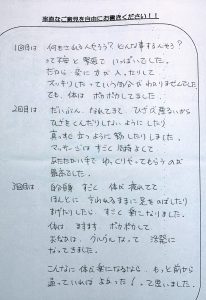 率直なご意見を自由にお書きください!!
1回目は 何をされるんだろう?どんな事するんだろう?
って不安と緊張で いっぱいでした。
だから 変に力が 入ったりして
スッキリしたっていう部分が わかりませんでした。
でも 体は ポカポカしてました。
2回目は だいぶん なれてきて ひざが悪るいから
ひざをくんだりしないように したり
真っすぐ立つように 努したりしました。
マッサージは すごく 気持よくて
あたたかい手で ゆっくりやってもらうのが
最高でした。
3回目は すごく 体が 疲れてて
ほんとに やられるままに 足をのばしたり
まげたりしたら すごく 楽になりました。
体は ますます ポカポカして
おなかは、グルグル なって 活発に
なってきました。
こんなに 体が楽になるなら、もっと前から
通っていれば よかった!って思いました。